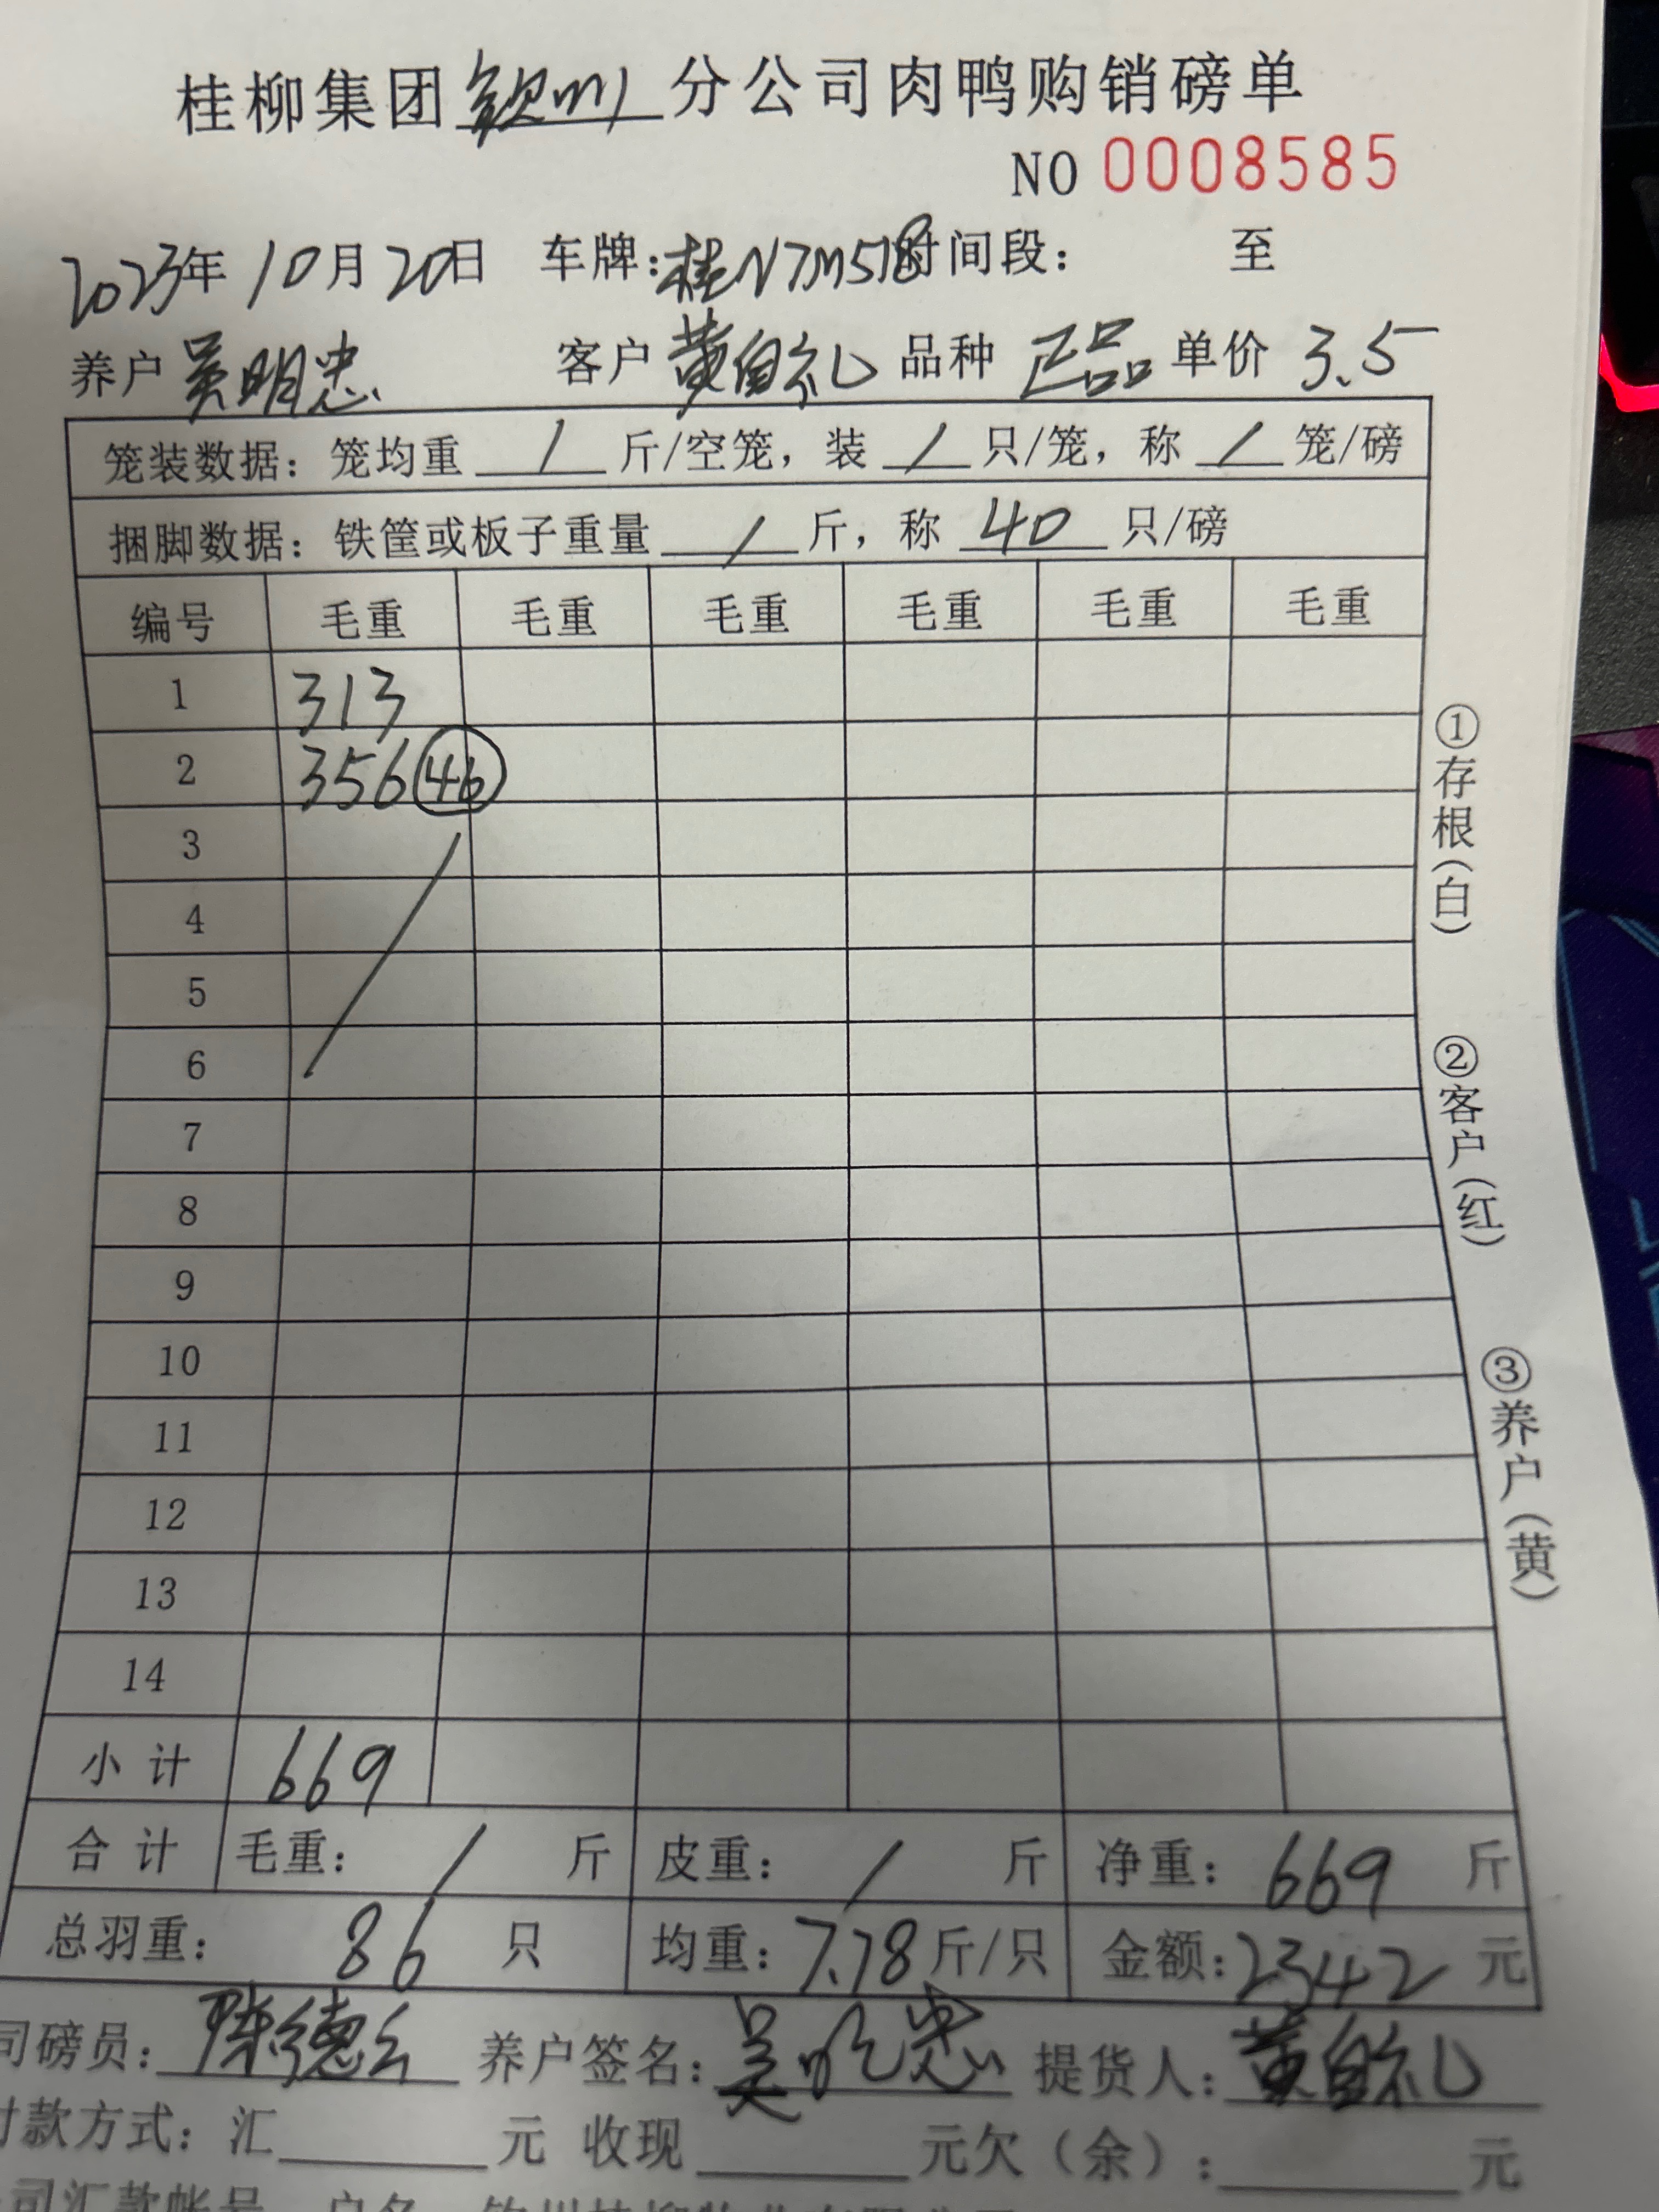 桂柳集团钦州分公司肉鸭购销磅单
NO 0008585
2023年10月20日 车牌:桂N7M518时间段: 至
养户 吴明忠 客户 黄自礼 品种 正品 单价 3.5
笼装数据: 笼均重 / 斤/空笼, 装 / 只/笼, 称 / 笼/磅
捆脚数据: 铁筐或板子重量 / 斤, 称 40 只/磅
编号 毛重 毛重 毛重 毛重 毛重 毛重
1 313
2 356 46
3
4
5
6
7
8
9
10
11
12
13
14
小计 669
合计 毛重: / 斤 皮重: / 斤 净重: 669 斤
总羽重: 86 只 均重: 7.78 斤/只 金额: 2342 元
司磅员: 陈德 养户签名: 吴明忠 提货人: 黄自礼
付款方式: 汇 元 收现 元欠(余): 元
司汇款帐号 户名
①存根(白)
②客户(红)
③养户(黄)